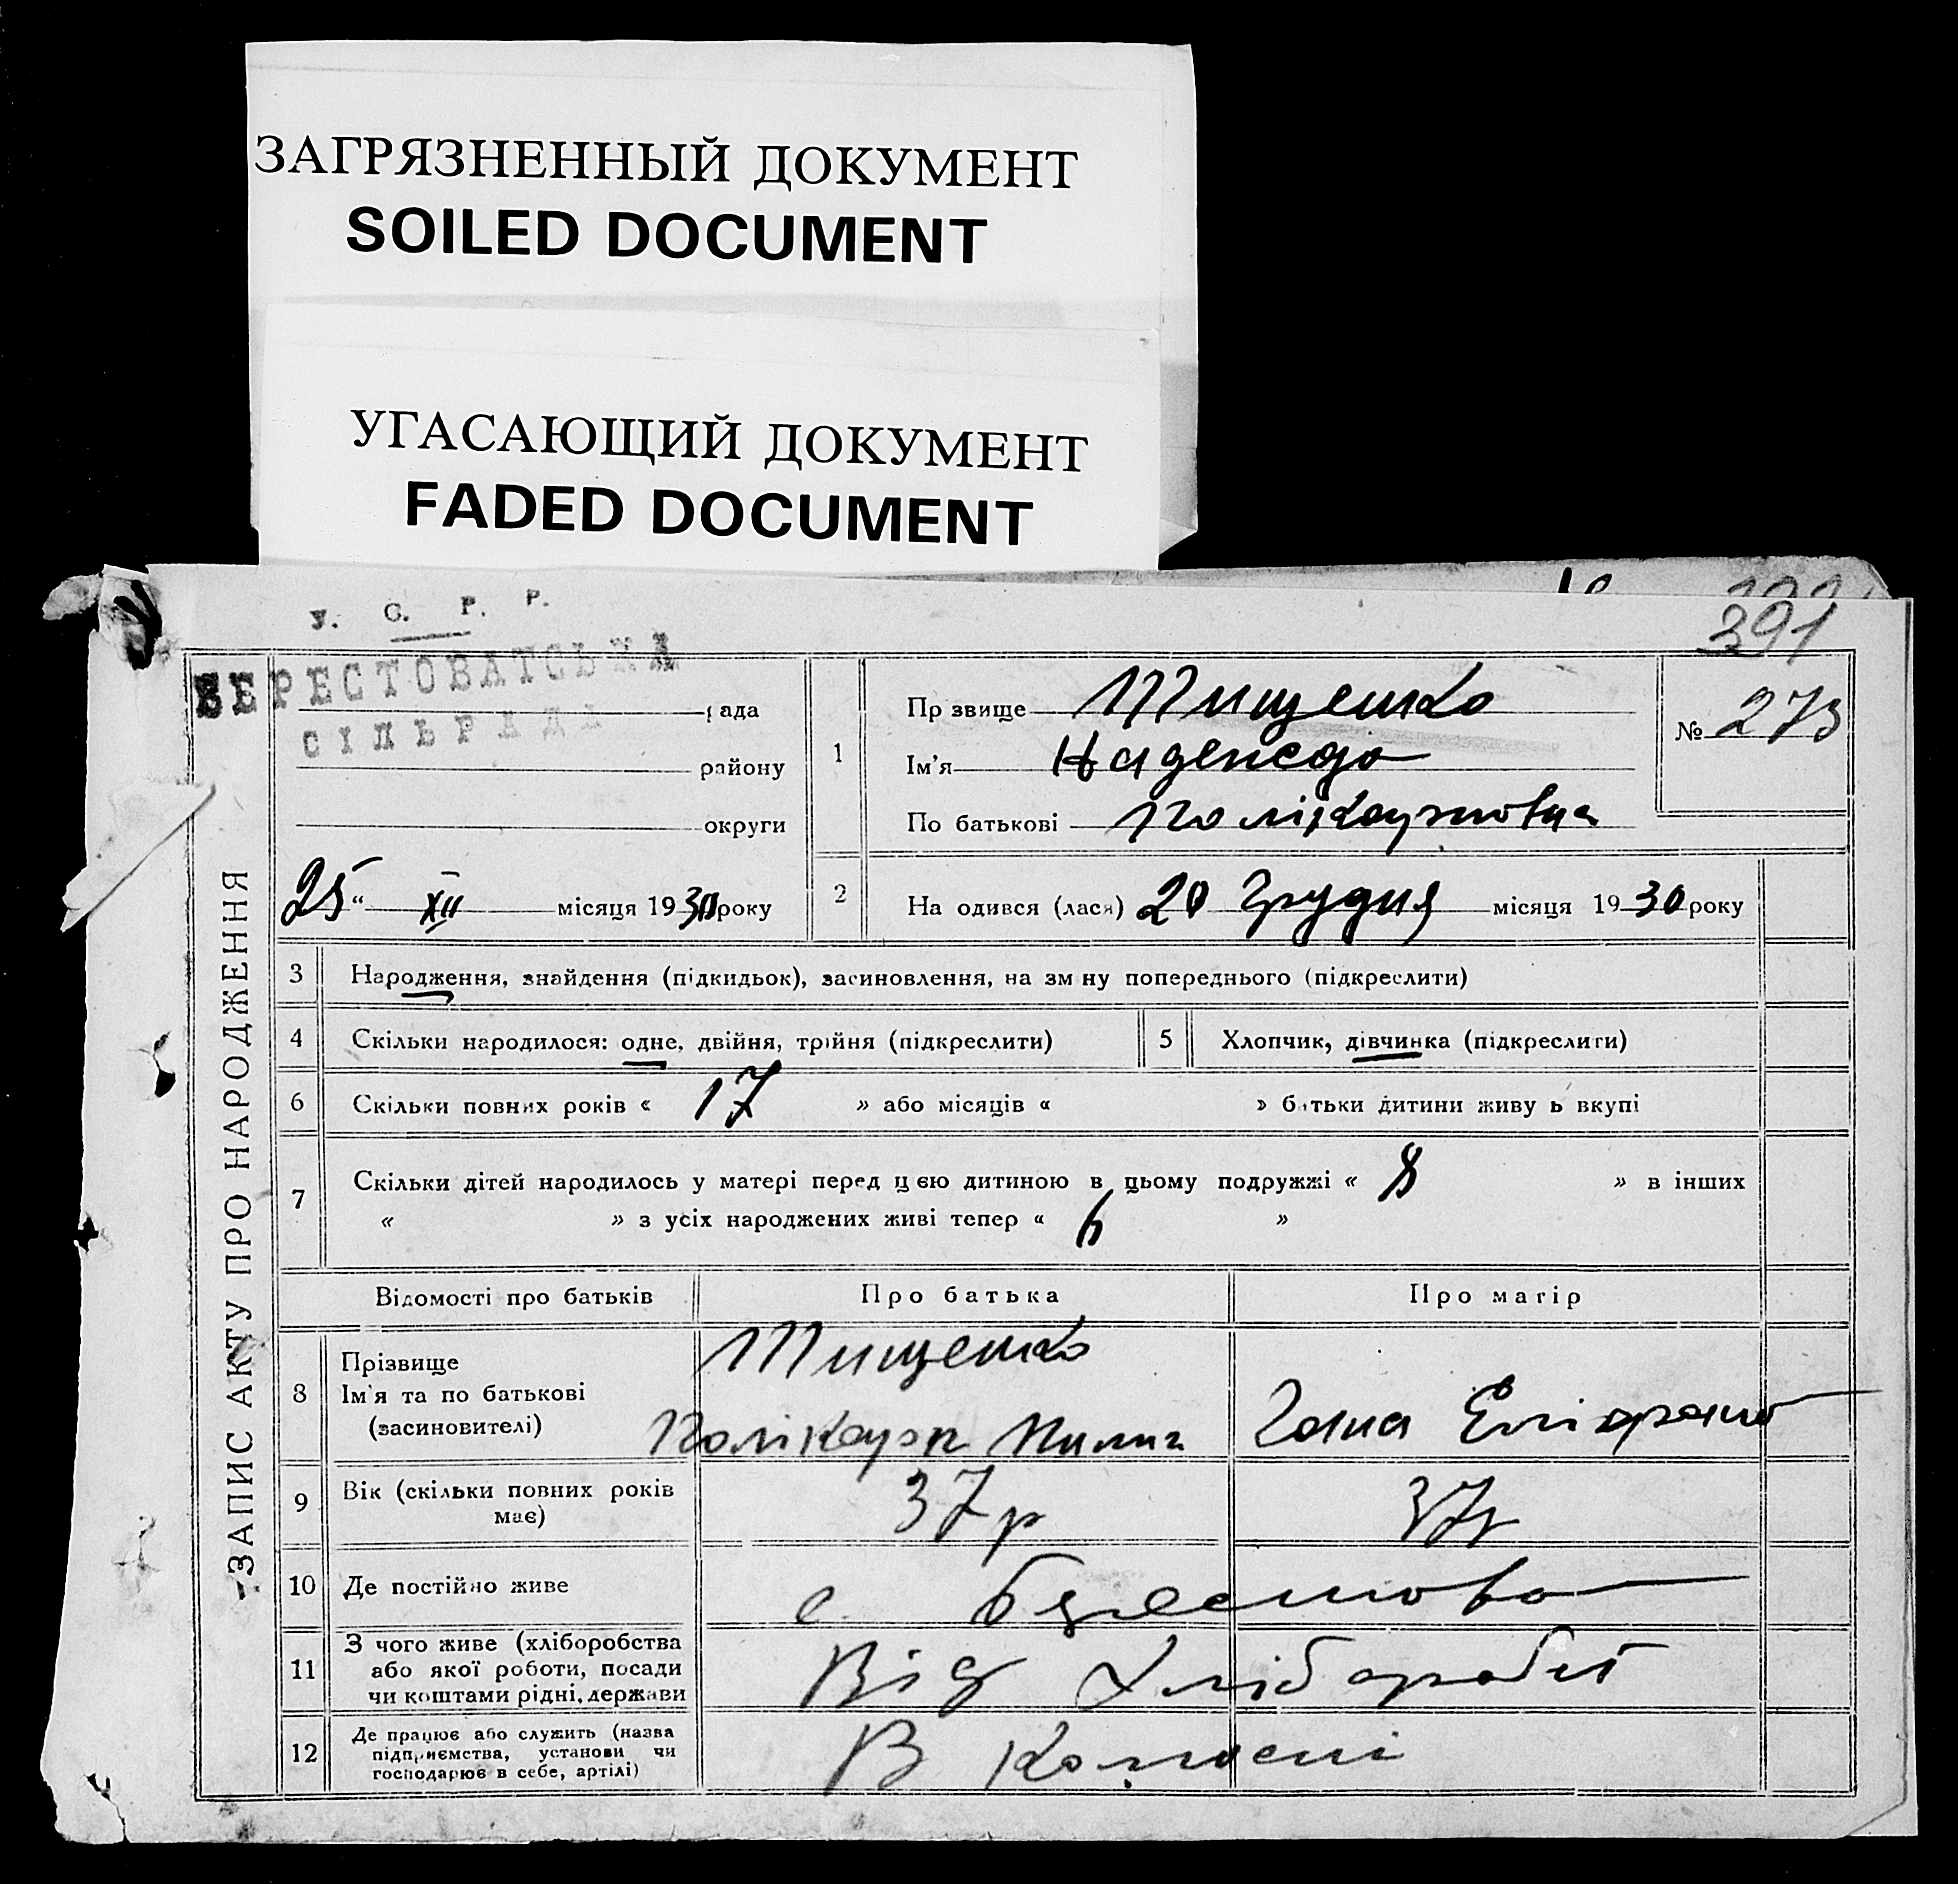 ЗАГРЯЗНЕННЫЙ ДОКУМЕНТ
SOILED DOCUMENT
УГАСАЮЩИЙ ДОКУМЕНТ
FADED DOCUMENT
391
У. С. Р. Р.
БЕРЕСТОВАТСЬКА
рада
СІЛЬРАДА
району
округи
25 " XII місяця 1930 року
ЗАПИС АКТУ ПРО НАРОДЖЕННЯ
1
Пр звище Тищенко
Ім'я Надежда
По батькові Полікарповна
№ 273
2 На одився (лася) 20 Грудня місяця 1930 року
3 Народження, знайдення (підкидьок), засиновлення, на зм ну попереднього (підкреслити)
4 Скільки народилося: одне, двійня, трійня (підкреслити)
5 Хлопчик, дівчинка (підкреслити)
6 Скільки повних років « 17 » або місяців « » батьки дитини живу ь вкупі
7 Скільки дітей народилось у матері перед ц єю дитиною в цьому подружжі « 8 » в інших
« » з усіх народжених живі тепер « 6 »
Відомості про батьків Про батька Про матір
8
Прізвище
Ім'я та по батькові
(засиновителі)
Тищенко
Полікарп
Ганна
9 Вік (скільки повних років
має)
37 р 37 р
10 Де постійно живе с.
11 З чого живе (хліборобства
або якої роботи, посади
чи коштами рідні, держави
Від хліборобст
12 Де працює або служить (назва
підприємства, установи чи
господарює в себе, артілі)
В